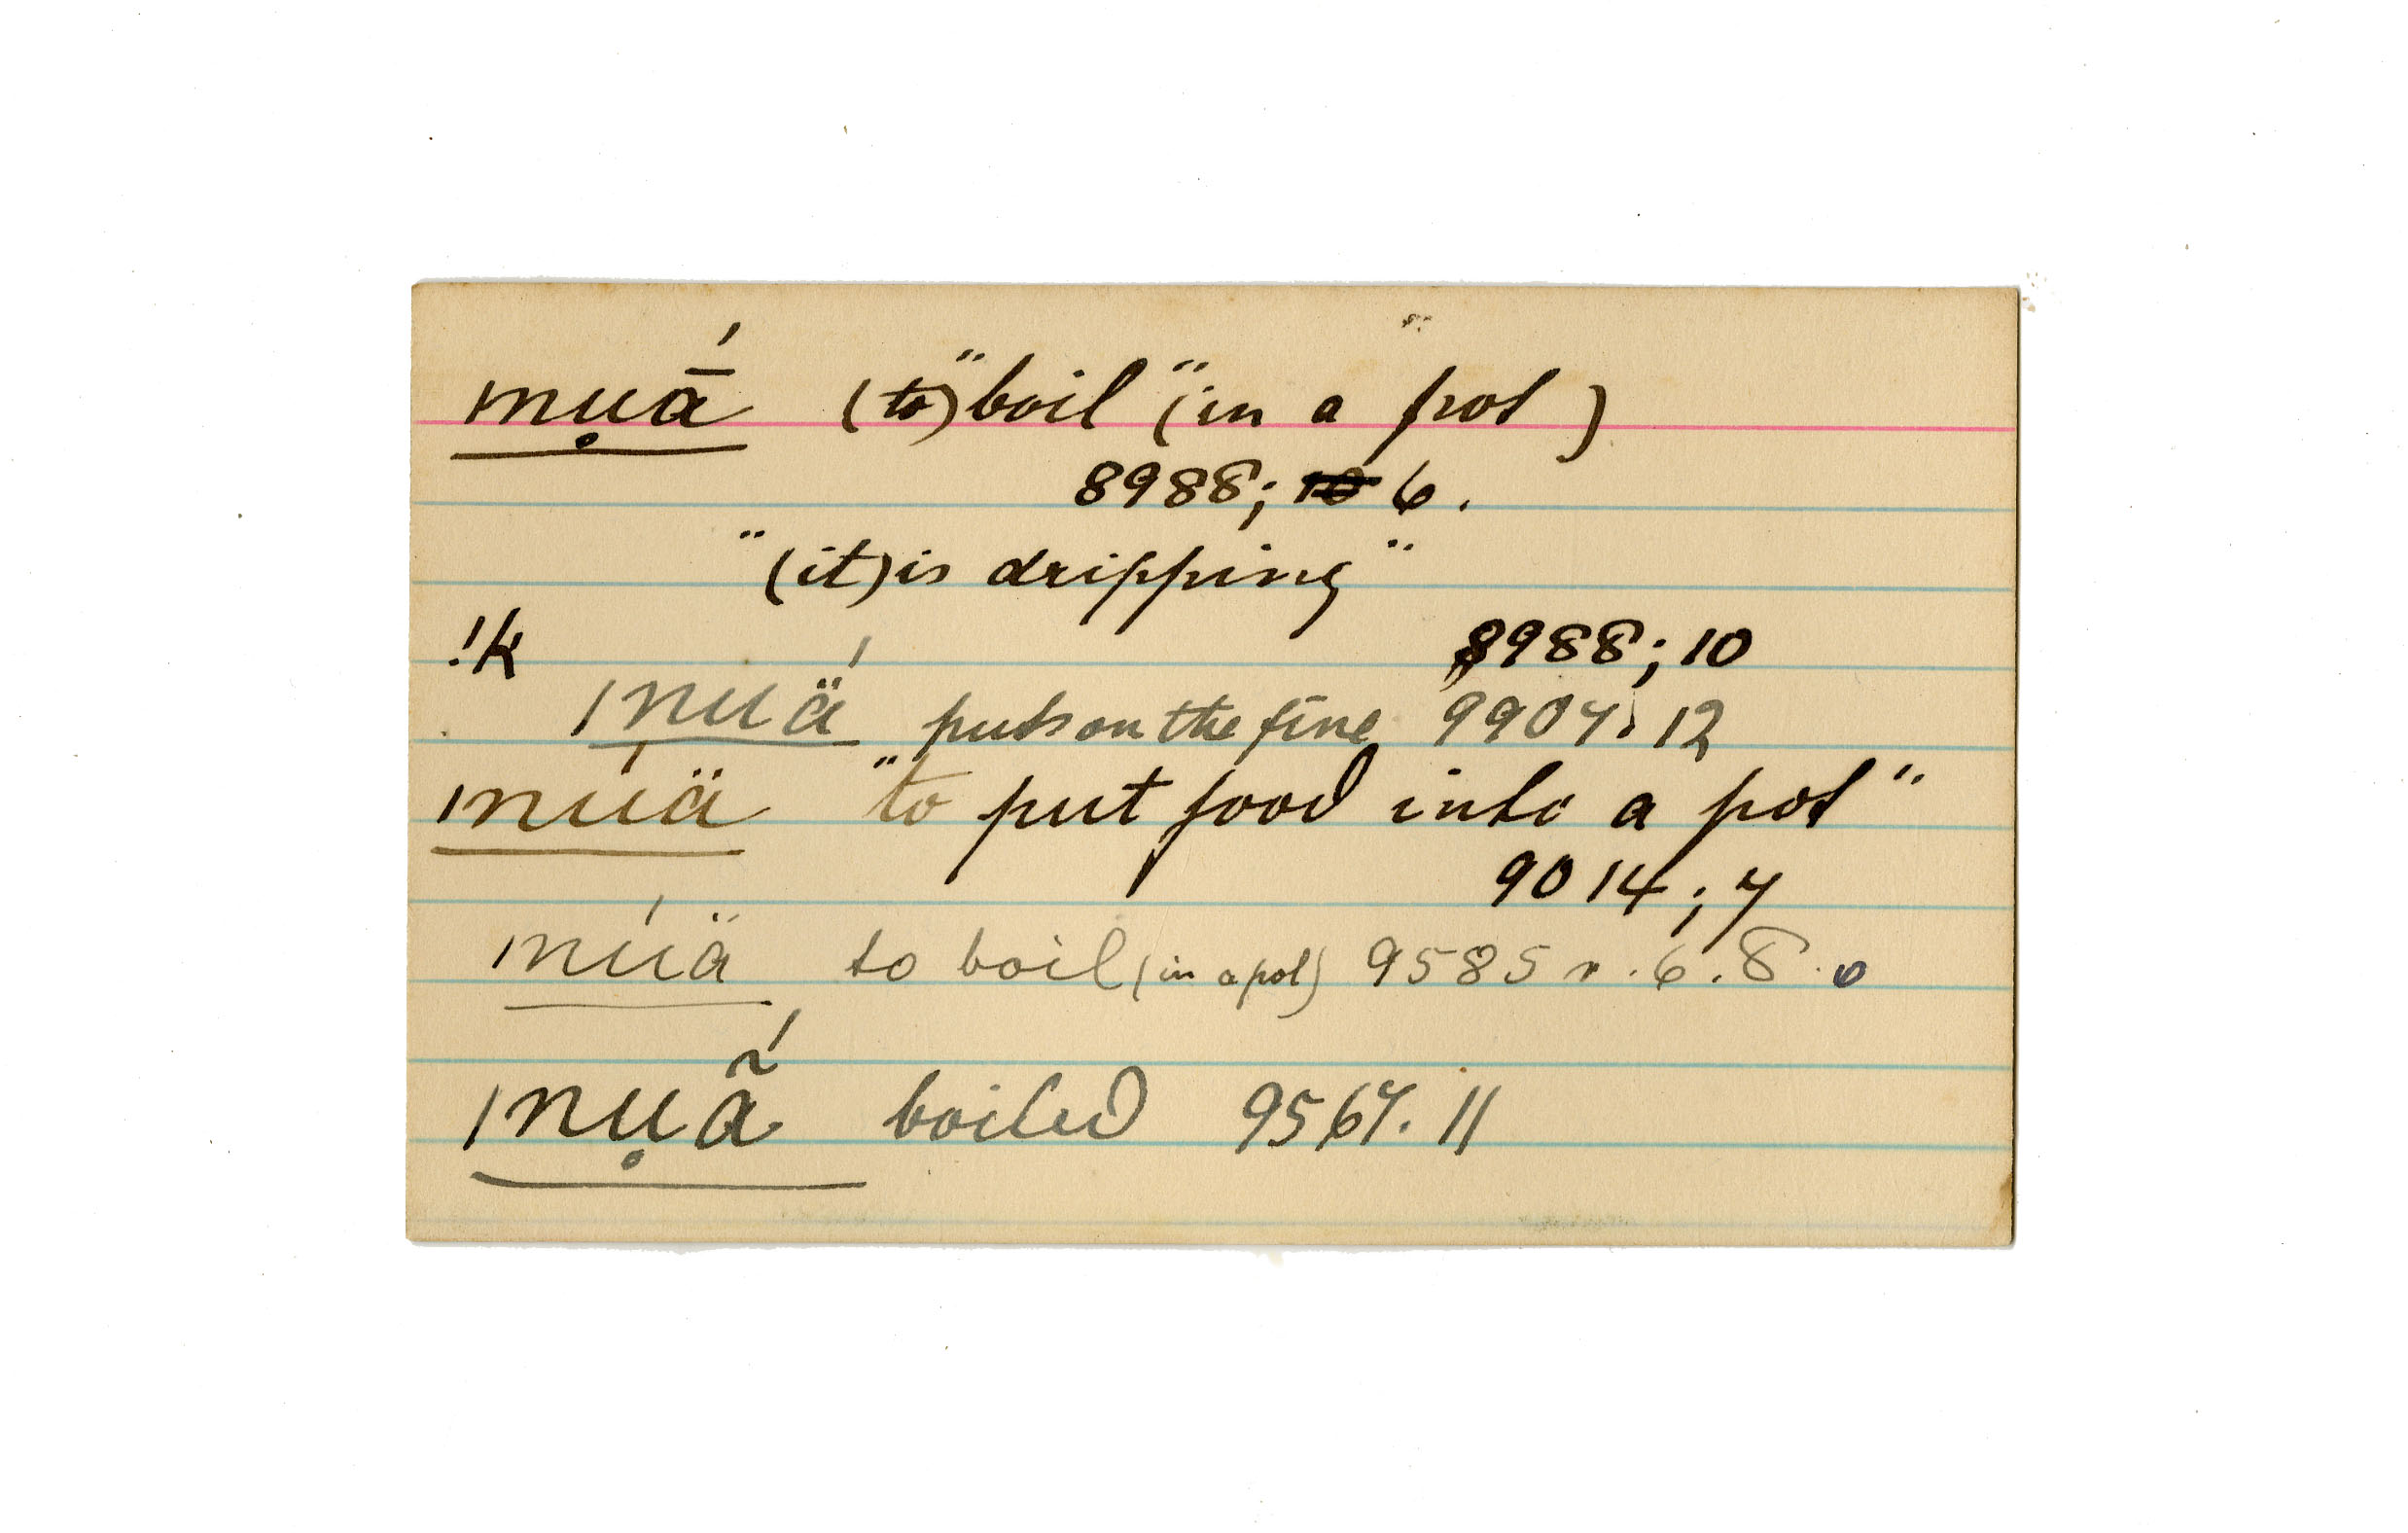 mụā́ (to) "boil" (in a pot)
8988; 10 6.
"(it) is dripping"
!k 8988; 10
muä́ puts on the fire 9907. 12
múä "to put food into a pot"
9014; 7
múä to boil (in a pot) 9585 r. 6. 8.
mụã́ boiled 9567. 11